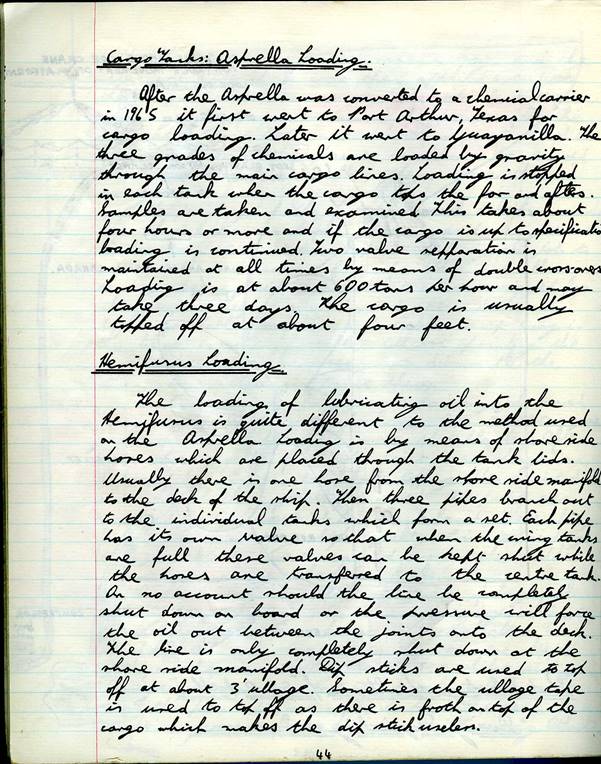 Cargo Tanks: Asprella Loading.
After the Asprella was converted to a chemical carrier
in 1965 it first went to Port Arthur, Texas for
cargo loading. Later it went to Guayanilla. The
three grades of chemicals are loaded by gravity
through the main cargo lines. Loading is stopped
in each tank when the cargo tops the for and afters.
Samples are taken and examined This takes about
four hours or more and if the cargo is up to specificatio
loading is continued. Two valve repparation is
maintained at all times by means of double crossovers
Loading is at about 600 tons per hour and may
take three days. The cargo is usually
topped off at about four feet.
Hemifusus Loading.
The loading of lubricating oil into the
Hemifusus is quite different to the method used
on the Asprella Loading is by means of shore side
hoses which are placed through the tank lids.
Usually there is one hose from the shore side manifold
to the deck of the ship. Then three pipes branch out
to the individual tanks which form a set. Each pipe
has its own valve so that when the wing tanks
are full these valves can be kept shut while
the hoses are transferred to the centre tank.
On no account should the line be completely
shut down on board or the pressure will force
the oil out between the joints onto the deck.
The line is only completely shut down at the
shore side manifold. Dip sticks are used to top
off at about 3' ullage. Sometimes the ullage tape
is used to top off as there is froth on top of the
cargo which makes the dip stick useless.
44